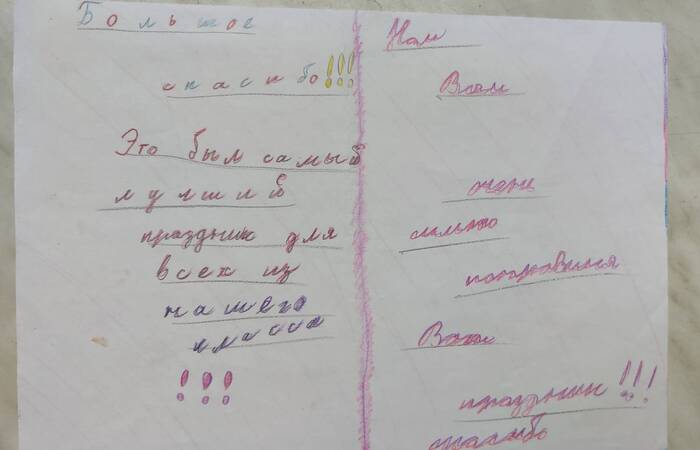 Большое
спасибо!!!
Это был самый
лучший
праздник для
всех из
нашего
класса
!!!
Нам
Вам
очень
сильно
понравился
Ваш
праздник!!!
спасибо